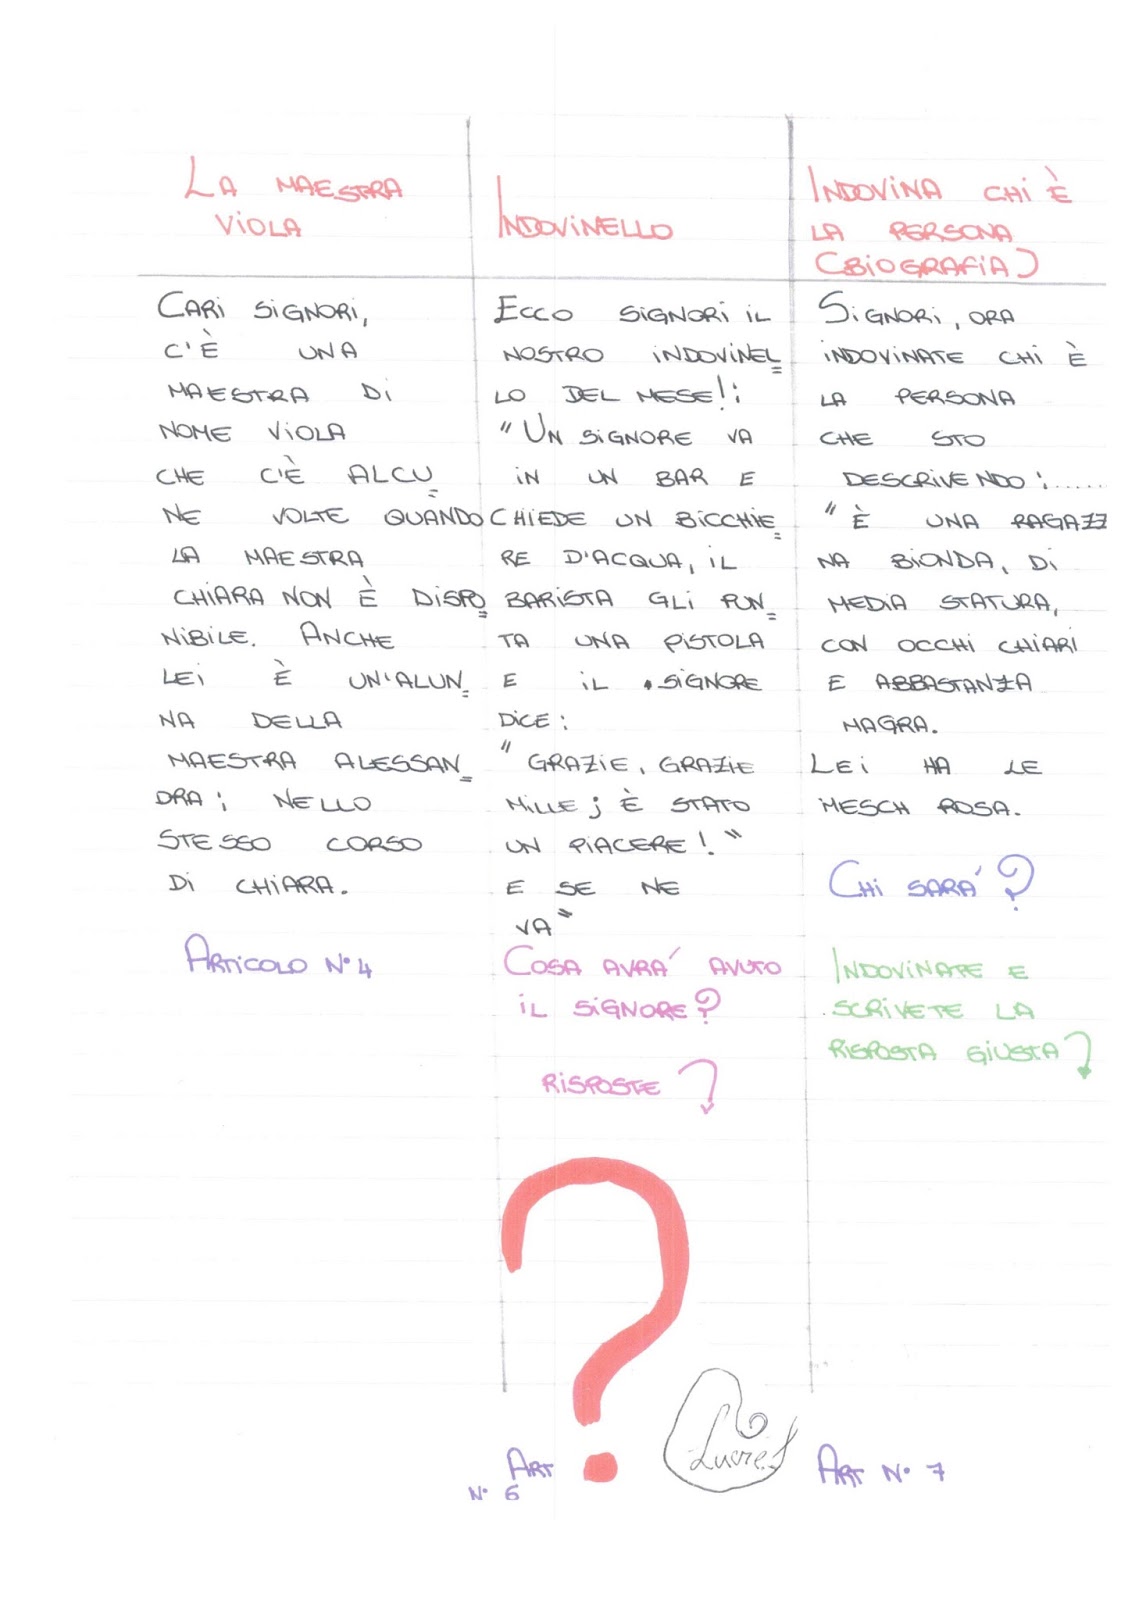 LA MAESTRA
VIOLA
CARI SIGNORI,
C'È UNA
MAESTRA DI
NOME VIOLA
CHE C'È ALCU=
NE VOLTE QUANDO
LA MAESTRA
CHIARA NON È DISPO=
NIBILE. ANCHE
LEI È UN'ALUN=
NA DELLA
MAESTRA ALESSAN=
DRA; NELLO
STESSO CORSO
DI CHIARA.
ARTICOLO N°4
INDOVINELLO
ECCO SIGNORI IL
NOSTRO INDOVINEL=
LO DEL MESE!:
"UN SIGNORE VA
IN UN BAR E
CHIEDE UN BICCHIE=
RE D'ACQUA, IL
BARISTA GLI PUN=
TA UNA PISTOLA
E IL SIGNORE
DICE:
"GRAZIE, GRAZIE
MILLE; È STATO
UN PIACERE!"
E SE NE
VA"
COSA AVRA' AVUTO
IL SIGNORE?
RISPOSTE
?
ART
N° 6
INDOVINA CHI È
LA PERSONA
(BIOGRAFIA)
SIGNORI, ORA
INDOVINATE CHI È
LA PERSONA
CHE STO
DESCRIVENDO:.....
"È UNA RAGAZZ
NA BIONDA, DI
MEDIA STATURA,
CON OCCHI CHIARI
E ABBASTANZA
MAGRA.
LEI HA LE
MESCH ROSA.
CHI SARA'?
INDOVINATE E
SCRIVETE LA
RISPOSTA GIUSTA
ART N° 7